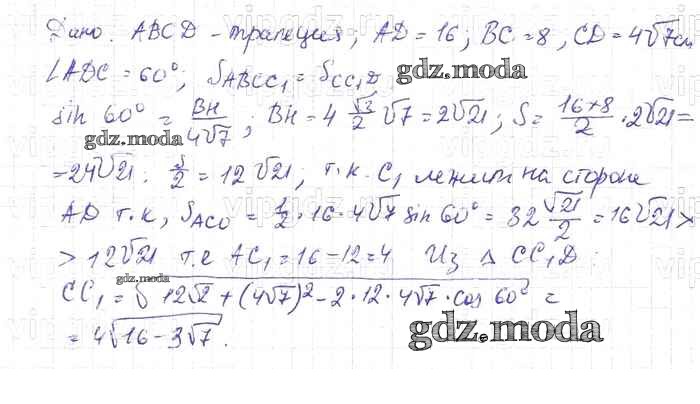 Дано: ABCD - трапеция; AD = 16; BC = 8, CD = 4√7см
∠ADC = 60°; S_ABCC₁ = S_CC₁D.
gdz.moda
sin 60° = BH/4√7; BH = 4 √3/2 √7 = 2√21; S = 16+8/2 · 2√21 =
gdz.moda
= 24√21. S/2 = 12√21; т.к. C₁ лежит на стороне
AD т.к, S_ACD = 1/2 · 16 · 4√7 sin 60° = 32 √21/2 = 16√21 >
> 12√21 т.е AC₁ = 16 - 12 = 4 Из Δ CC₁D:
gdz.moda
CC₁ = √12√2 + (4√7)² - 2 · 12 · 4√7 · cos 60° =
= 4√16 - 3√7.
gdz.moda